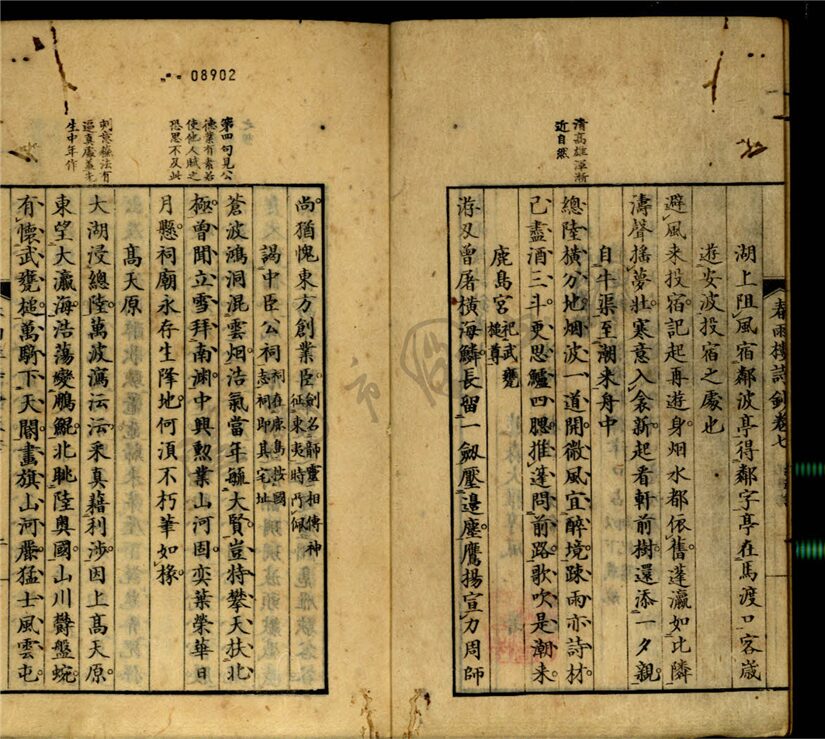 08902
春雨樓詩鈔卷七
湖上阻風宿鄰波亭得鄰字亭在馬渡口客歲
遊安波投宿之處也
避風來投宿記起再遊身烟水都依舊蓬瀛如比隣
濤聲搖夢壯寒意入衾新起看軒前樹還添一夕親
自牛渠至潮來舟中
總陸橫分地烟波一道開微風宜醉境疎雨亦詩材
己盡酒三斗更思鱸四腮推篷問前路歌吹是潮來
鹿島宮祀武甕槌尊
游刃曾屠橫海鱗長留一劔壓邊塵鷹揚宣力周師
清高雄渾漸
近自然
尚猶愧東方創業臣劍名師靈相傳神征東夷時所佩
謁中臣公祠祠在鹿島按國志祠即其宅址
蒼波鴻洞混雲烟浩氣當年毓大賢豈特攀天扶北
極曾聞立雪拜南淵中興勲業山河固奕葉榮華日
月懸祠廟永存生降地何須不朽筆如椽
高天原
大湖浸總陸萬波瀉沄沄乘真藉利涉因上高天原
東望大瀛海浩蕩變鵬鯤北眺陸奧國山川欝盤蜿
有懷武甕槌萬騎下天閽畫旗山河震猛士風雲屯
第四句見公
德業有素若
使他人賦之
恐思不及此
刻意蘇法有
逼真處蓋先
生中年作